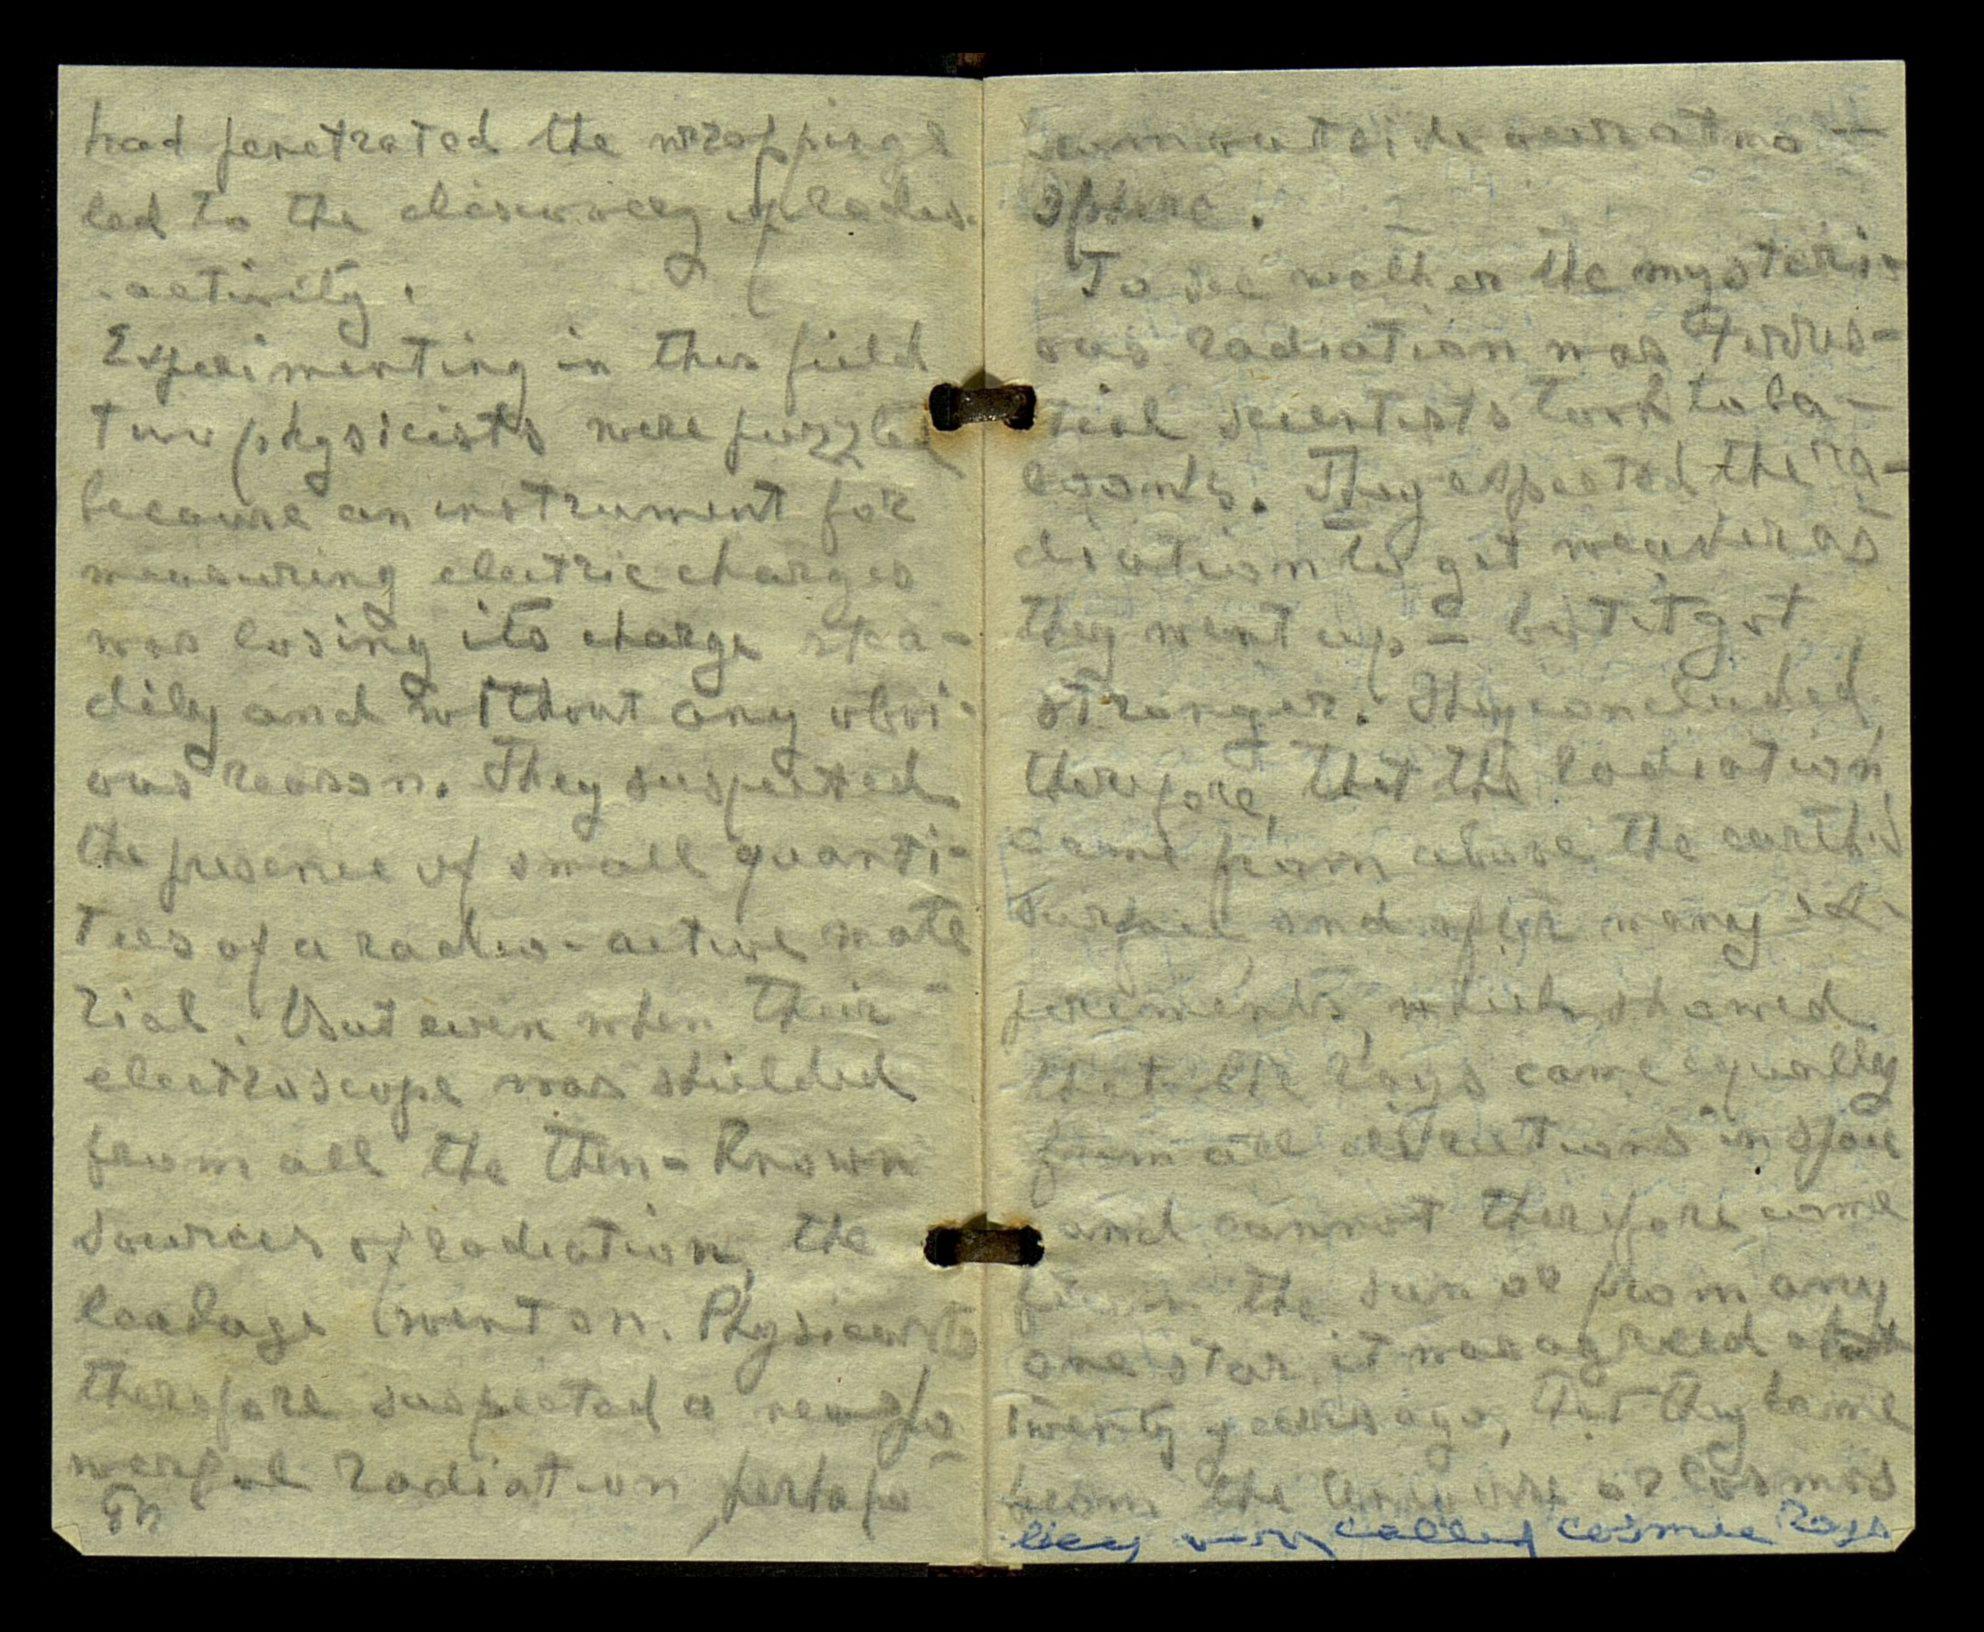 had penetrated the wrappings
led to the discovery of radio-
-activity.
Experimenting in this field
two physicists were puzzled
because an instrument for
measuring electric charges
was losing its charge stea-
dily and without any obvi-
ous reason. They suspected
the presence of small quanti-
ties of a radio-active mate
rial. But even when their
electroscope was shielded
from all the then-known
sources of radiation, the
leakage went on. Physicists
therefore suspected a new po-
werful radiation, perhaps
from outside our atmo-
sphere.
To see wether the mysteri-
ous radiation was Terres-
tial scientists took to ba-
loons. They expected the ra-
diation to get weaker as
they went up - but it got
stronger. They concluded,
therefore, that the radiation
came from above the earth's
surface and after many ex-
periments, which showed
that the rays came equally
from all directions in space
and cannot therefore come
from the sun or from any
one star, it was agreed about
twenty years ago, that they came
from the Universe or Cosmos
they were called Cosmic Rays